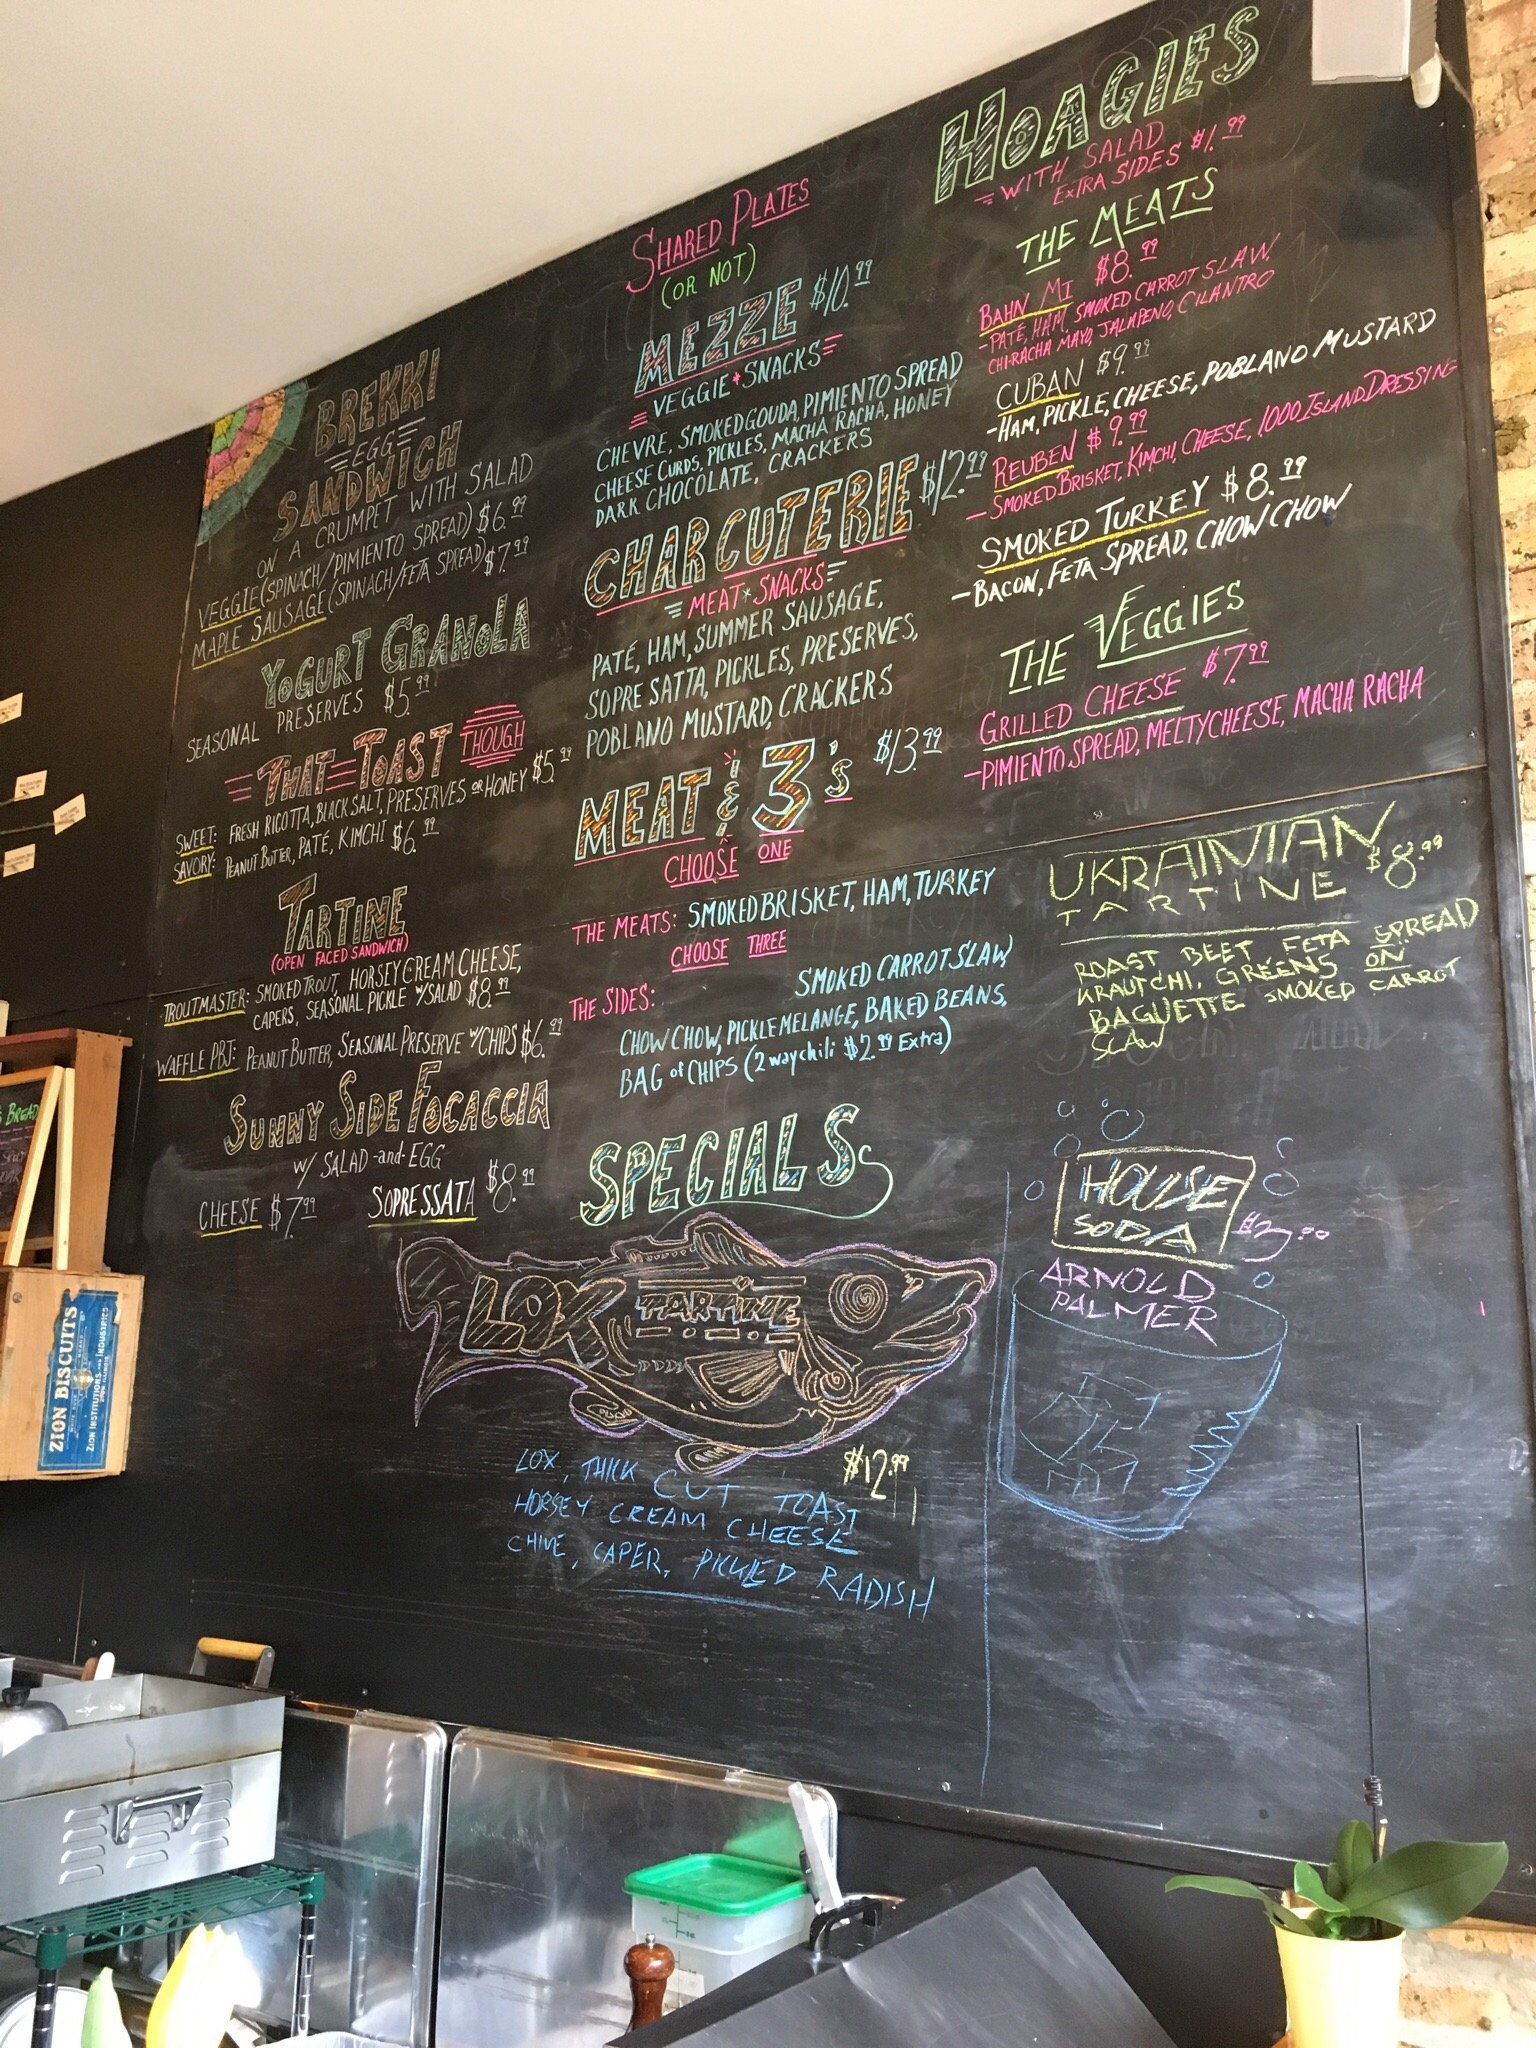 BREKKI
EGG
SANDWICH
ON A CRUMPET WITH SALAD
VEGGIE (SPINACH/PIMIENTO SPREAD) $6.99
MAPLE SAUSAGE (SPINACH/FETA SPREAD) $7.99
YOGURT GRANOLA
SEASONAL PRESERVES $5.99
THAT TOAST THOUGH
SWEET: FRESH RICOTTA, BLACK SALT, PRESERVES OR HONEY $5.99
SAVORY: PEANUT BUTTER, PATÉ, KIMCHI $6.99
TARTINE
(OPEN FACED SANDWICH)
TROUTMASTER: SMOKED TROUT, HORSEY CREAM CHEESE,
CAPERS, SEASONAL PICKLE W/SALAD $8.99
WAFFLE PBJ: PEANUT BUTTER, SEASONAL PRESERVE W/CHIPS $6.99
SUNNY SIDE FOCACCIA
W/ SALAD -and- EGG
CHEESE $7.99 SOPRESSATA $8.99
SHARED PLATES
(OR NOT)
MEZZE $10.99
VEGGIE * SNACKS
CHEVRE, SMOKED GOUDA, PIMIENTO SPREAD
CHEESE CURDS, PICKLES, MACHA RACHA, HONEY
DARK CHOCOLATE, CRACKERS
CHARCUTERIE $12.99
MEAT * SNACKS
PATÉ, HAM, SUMMER SAUSAGE,
SOPRE SATTA, PICKLES, PRESERVES,
POBLANO MUSTARD, CRACKERS
MEAT & 3'S $13.99
CHOOSE ONE
THE MEATS: SMOKED BRISKET, HAM, TURKEY
CHOOSE THREE
THE SIDES: SMOKED CARROT SLAW
CHOW CHOW, PICKLE MELANGE, BAKED BEANS,
BAG of CHIPS (2 way chili $2.99 Extra)
SPECIALS
LOX TARTINE
$12.99
LOX, THICK CUT TOAST
HORSEY CREAM CHEESE
CHIVE, CAPER, PICKLED RADISH
HOAGIES
WITH SALAD
EXTRA SIDES $1.99
THE MEATS
BAHN MI $8.99
-PATÉ, HAM, SMOKED CARROT SLAW,
CHI-RACHA MAYO, JALAPENO, CILANTRO
CUBAN $9.99
-HAM, PICKLE, CHEESE, POBLANO MUSTARD
REUBEN $9.99
-SMOKED BRISKET, KIMCHI, CHEESE, 1000 ISLAND DRESSING
SMOKED TURKEY $8.99
-BACON, FETA SPREAD, CHOW CHOW
THE VEGGIES
GRILLED CHEESE $7.99
-PIMIENTO SPREAD, MELTY CHEESE, MACHA RACHA
UKRAINIAN
TARTINE $8.99
ROAST BEET, FETA SPREAD
KRAUTCHI, GREENS ON
BAGUETTE SMOKED CARROT
SLAW
HOUSE
SODA $3.00
ARNOLD
PALMER
BREAD
ZION BISCUITS
ZION INSTITUTIONS and INDUSTRIES